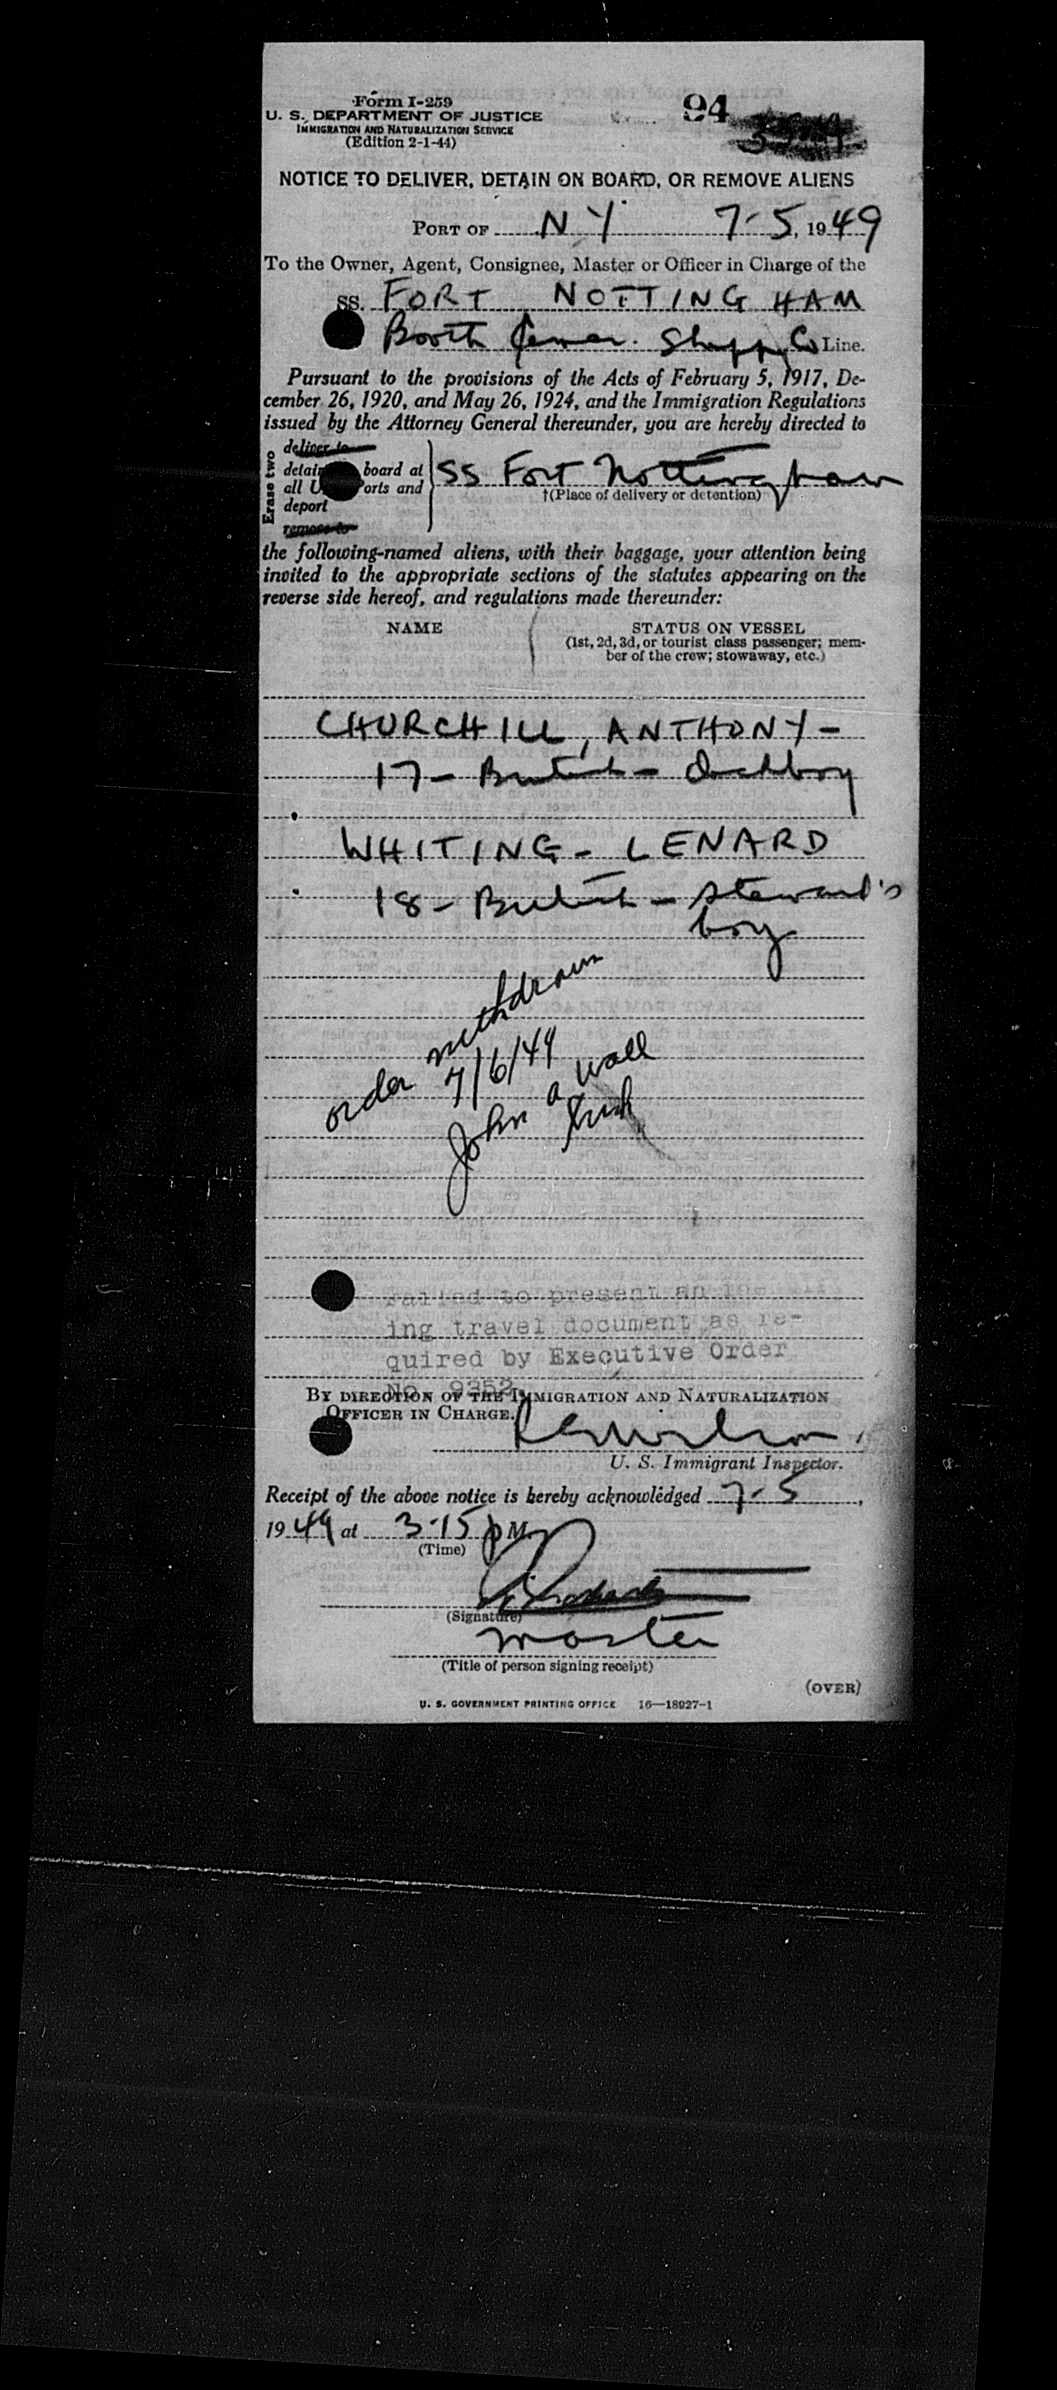 Form I-259
94
U. S. DEPARTMENT OF JUSTICE
IMMIGRATION AND NATURALIZATION SERVICE
(Edition 2-1-44)
NOTICE TO DELIVER, DETAIN ON BOARD, OR REMOVE ALIENS
PORT OF N.Y. 7-5, 1949
To the Owner, Agent, Consignee, Master or Officer in Charge of the
SS. FORT NOTTINGHAM
Booth Co Line.
Pursuant to the provisions of the Acts of February 5, 1917, De-
cember 26, 1920, and May 26, 1924, and the Immigration Regulations
issued by the Attorney General thereunder, you are hereby directed to
Erase two
deliver to
detain board at
all U orts and
deport
remove to
SS Fort Nottingham
†(Place of delivery or detention)
the following-named aliens, with their baggage, your attention being
invited to the appropriate sections of the statutes appearing on the
reverse side hereof, and regulations made thereunder:
NAME STATUS ON VESSEL
(1st, 2d, 3d, or tourist class passenger; mem-
ber of the crew; stowaway, etc.)
CHURCHILL, ANTHONY -
17 - British - deckboy
WHITING - LENARD
18 - British - steward's
boy
order withdrawn
7/6/49
John a Wall
Failed to present an
ing travel document as re-
quired by Executive Order
No. 9352.
BY DIRECTION OF THE IMMIGRATION AND NATURALIZATION
OFFICER IN CHARGE.
U. S. Immigrant Inspector.
Receipt of the above notice is hereby acknowledged 7-5,
1949 at 3-15 P M
(Time)
(Signature)
Master
(Title of person signing receipt)
(OVER)
U. S. GOVERNMENT PRINTING OFFICE 16—18927-1